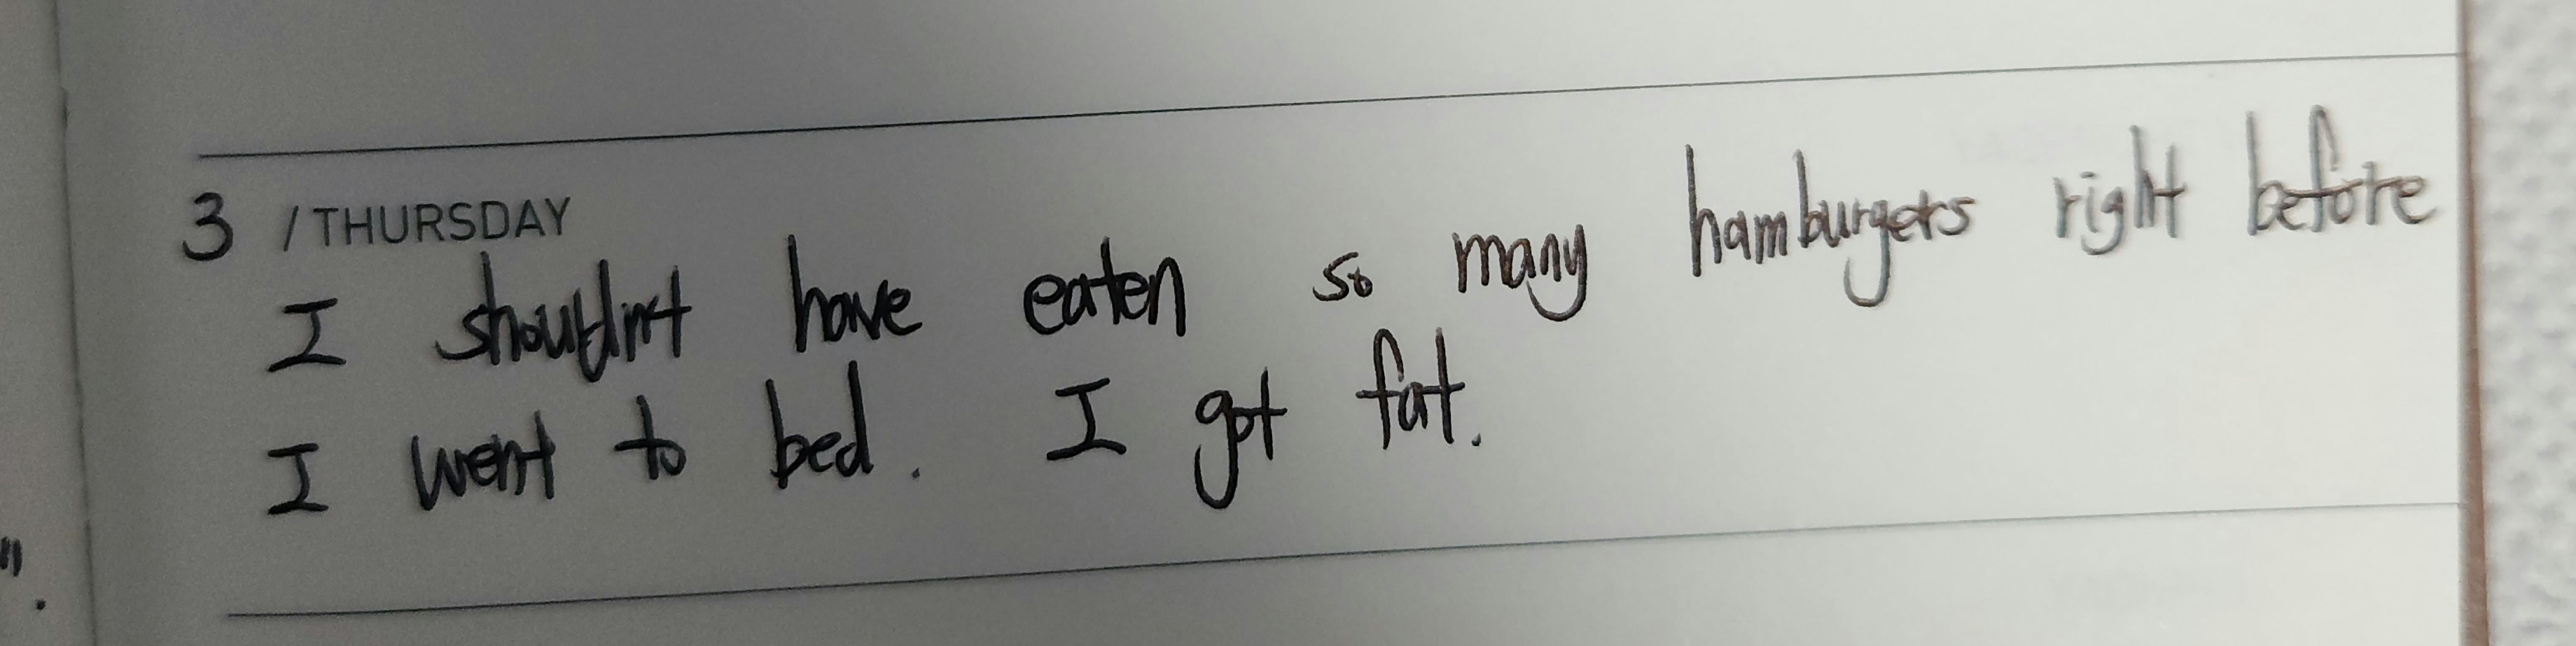 3 / THURSDAY
I shouldn't have eaten so many hamburgers right before
I went to bed. I got fat.
".